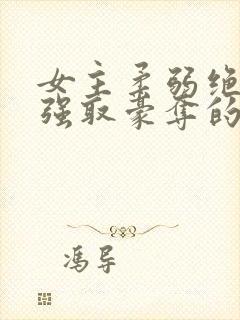 女主柔弱绝
强取豪夺的
冯导